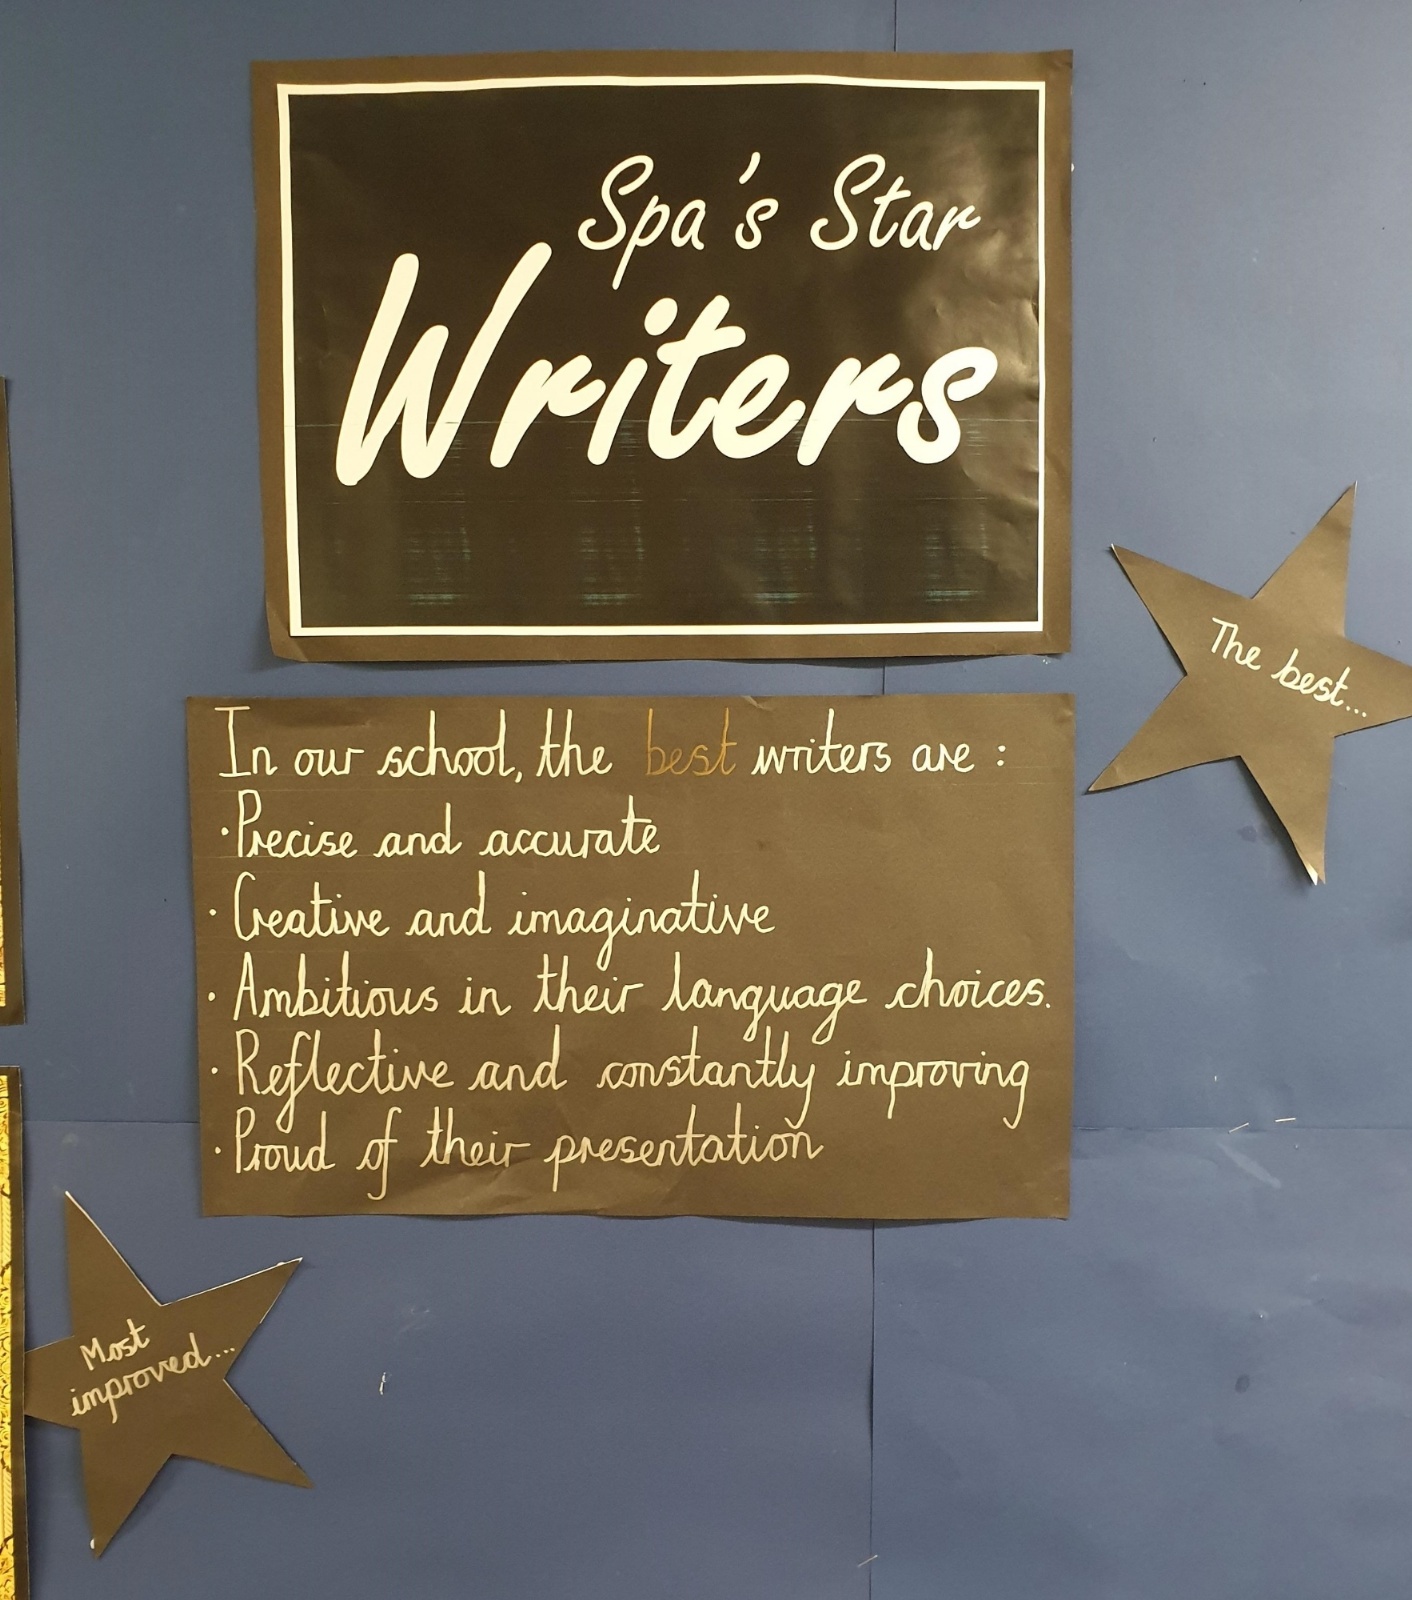 Spa's Star
Writers
The best...
In our school, the best writers are :
· Precise and accurate
· Creative and imaginative
· Ambitious in their language choices.
· Reflective and constantly improving
· Proud of their presentation
Most
improved...